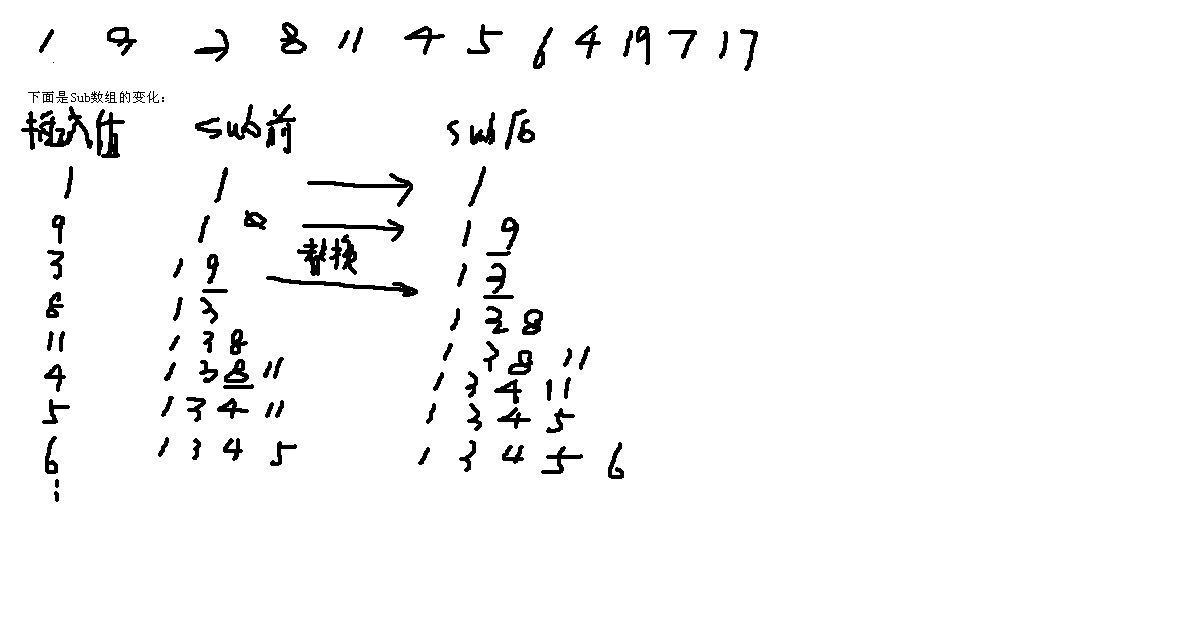 1 9 3 8 11 4 5 6 4 19 7 17
下面是Sub数组的变化:
插入值 Sub前 Sub后
1 1 1
9 1 1 9
替换
3 1 9 1 3
8 1 3 1 3 8
11 1 3 8 1 3 8 11
4 1 3 8 11 1 3 4 11
5 1 3 4 11 1 3 4 5
6 1 3 4 5 1 3 4 5 6
⋮